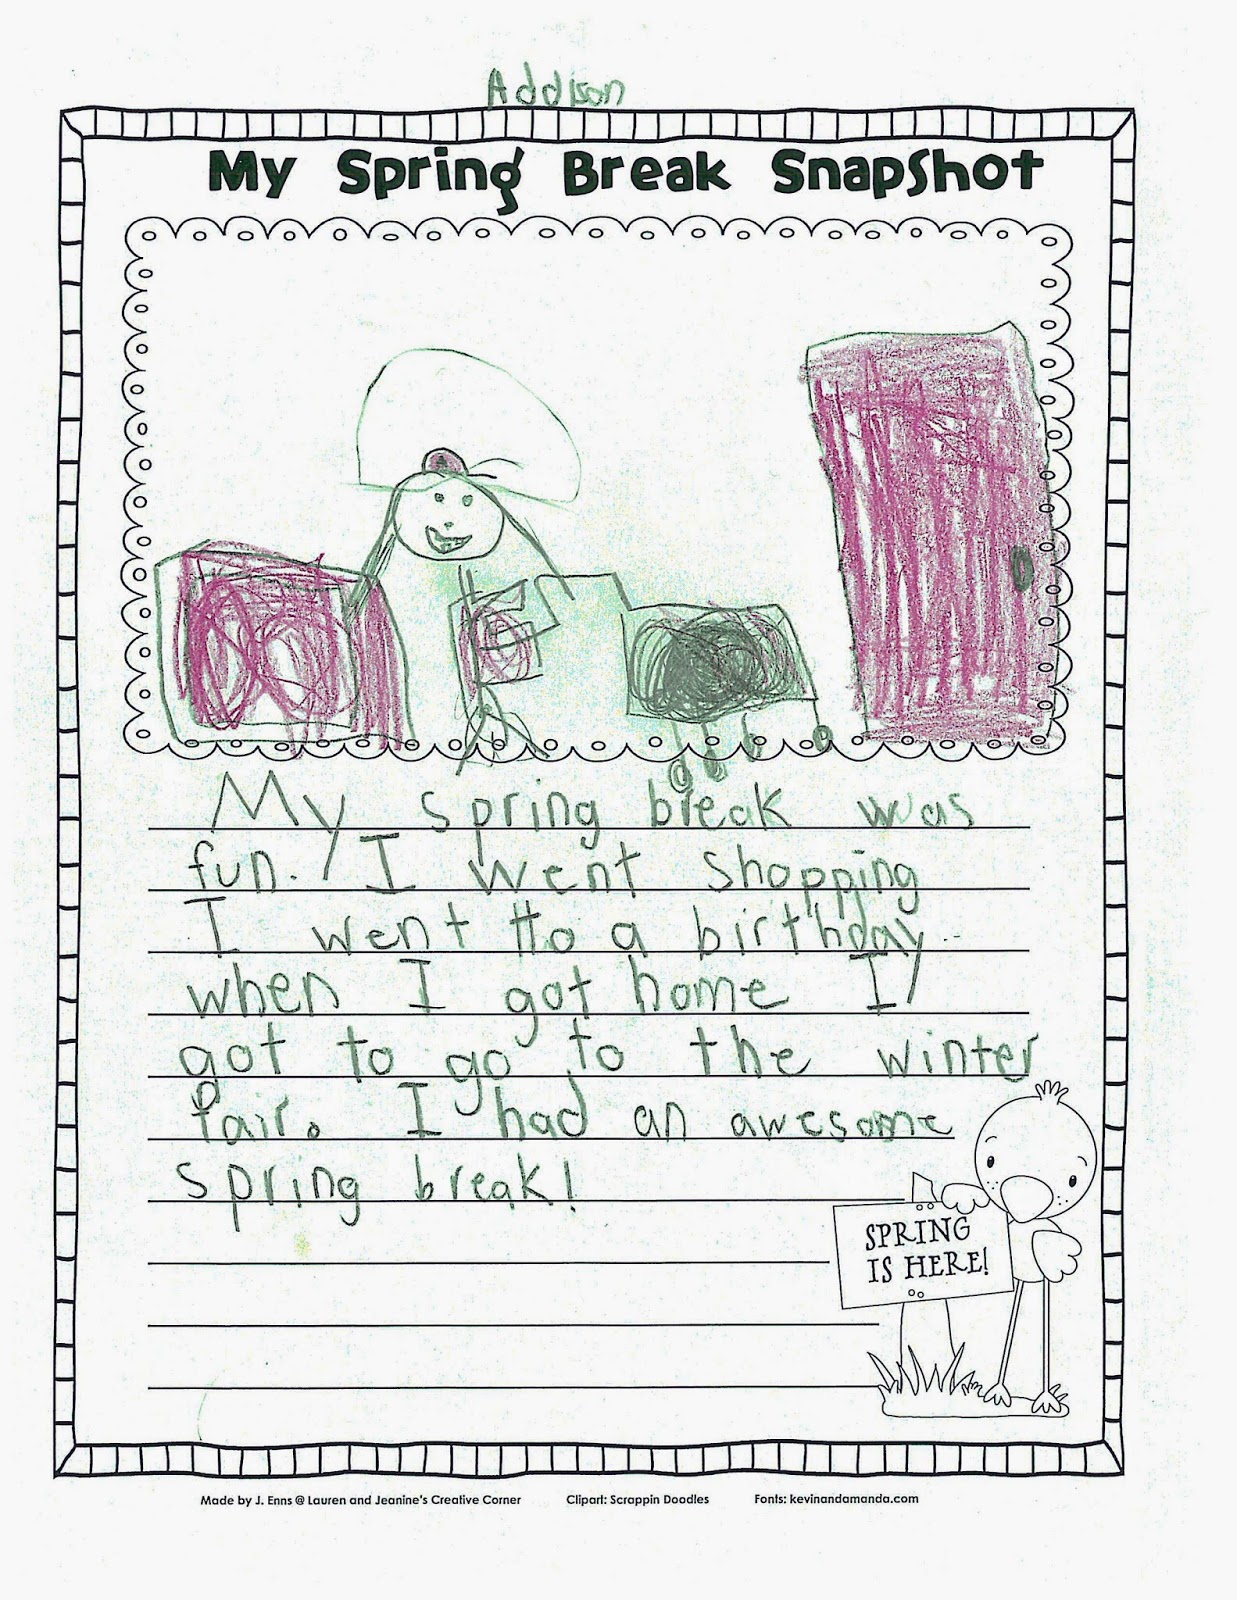 Addison
My Spring Break Snapshot
My spring break was
fun. I went shopping
I went to a birthday.
when I got home I
got to go to the winter
fair. I had an awesome
spring break!
SPRING
IS HERE!
Made by J. Enns @ Lauren and Jeanine's Creative Corner Clipart: Scrappin Doodles Fonts: kevinandamanda.com